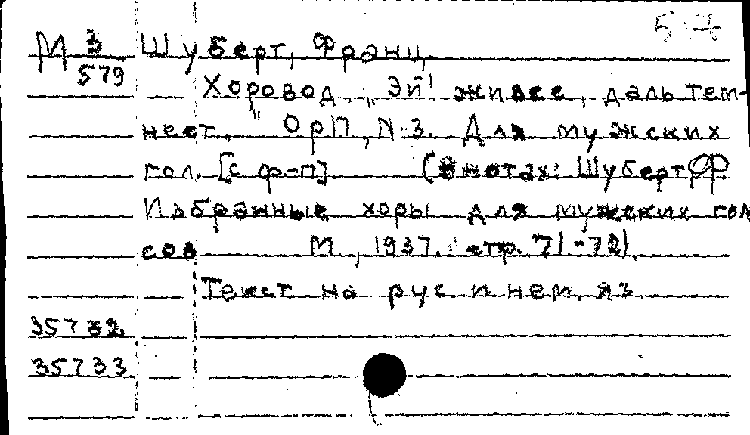 М 3 Шуберт, Франц.
579
Хоровод. „Эй! живее, даль тем-
неет." Ор 17, N 3. Для мужских
гол. [с ф-п] (В нотах: Шуберт Ф
Избранные хоры для мужских голо
сов М., 1937. стр. 71-72).
Текст на рус и нем. яз.
35732
35733